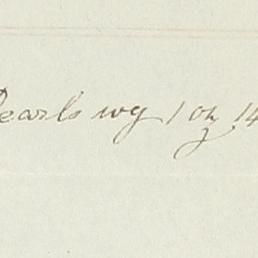 Pearls wg 1 oz 14